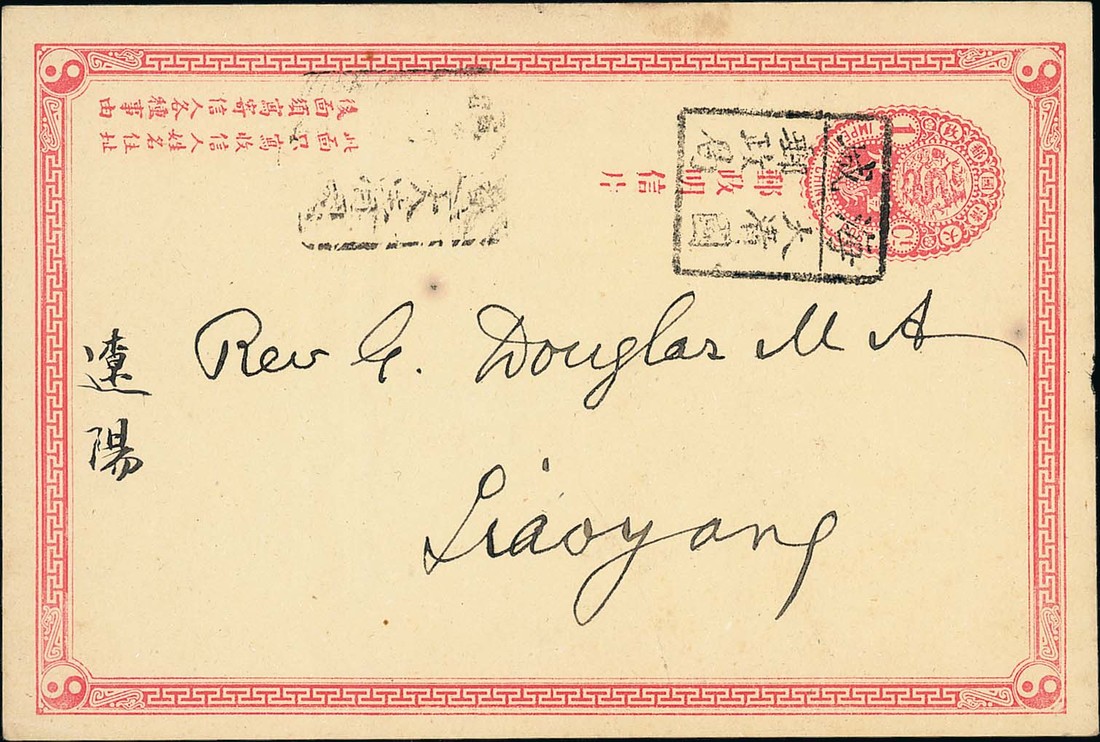 後面須寫寄信人各種事由
此面只寫收信人姓名住址
郵政明信片
大清國
郵政局
1
Rev G. Douglas M A
Liaoyang
遼陽